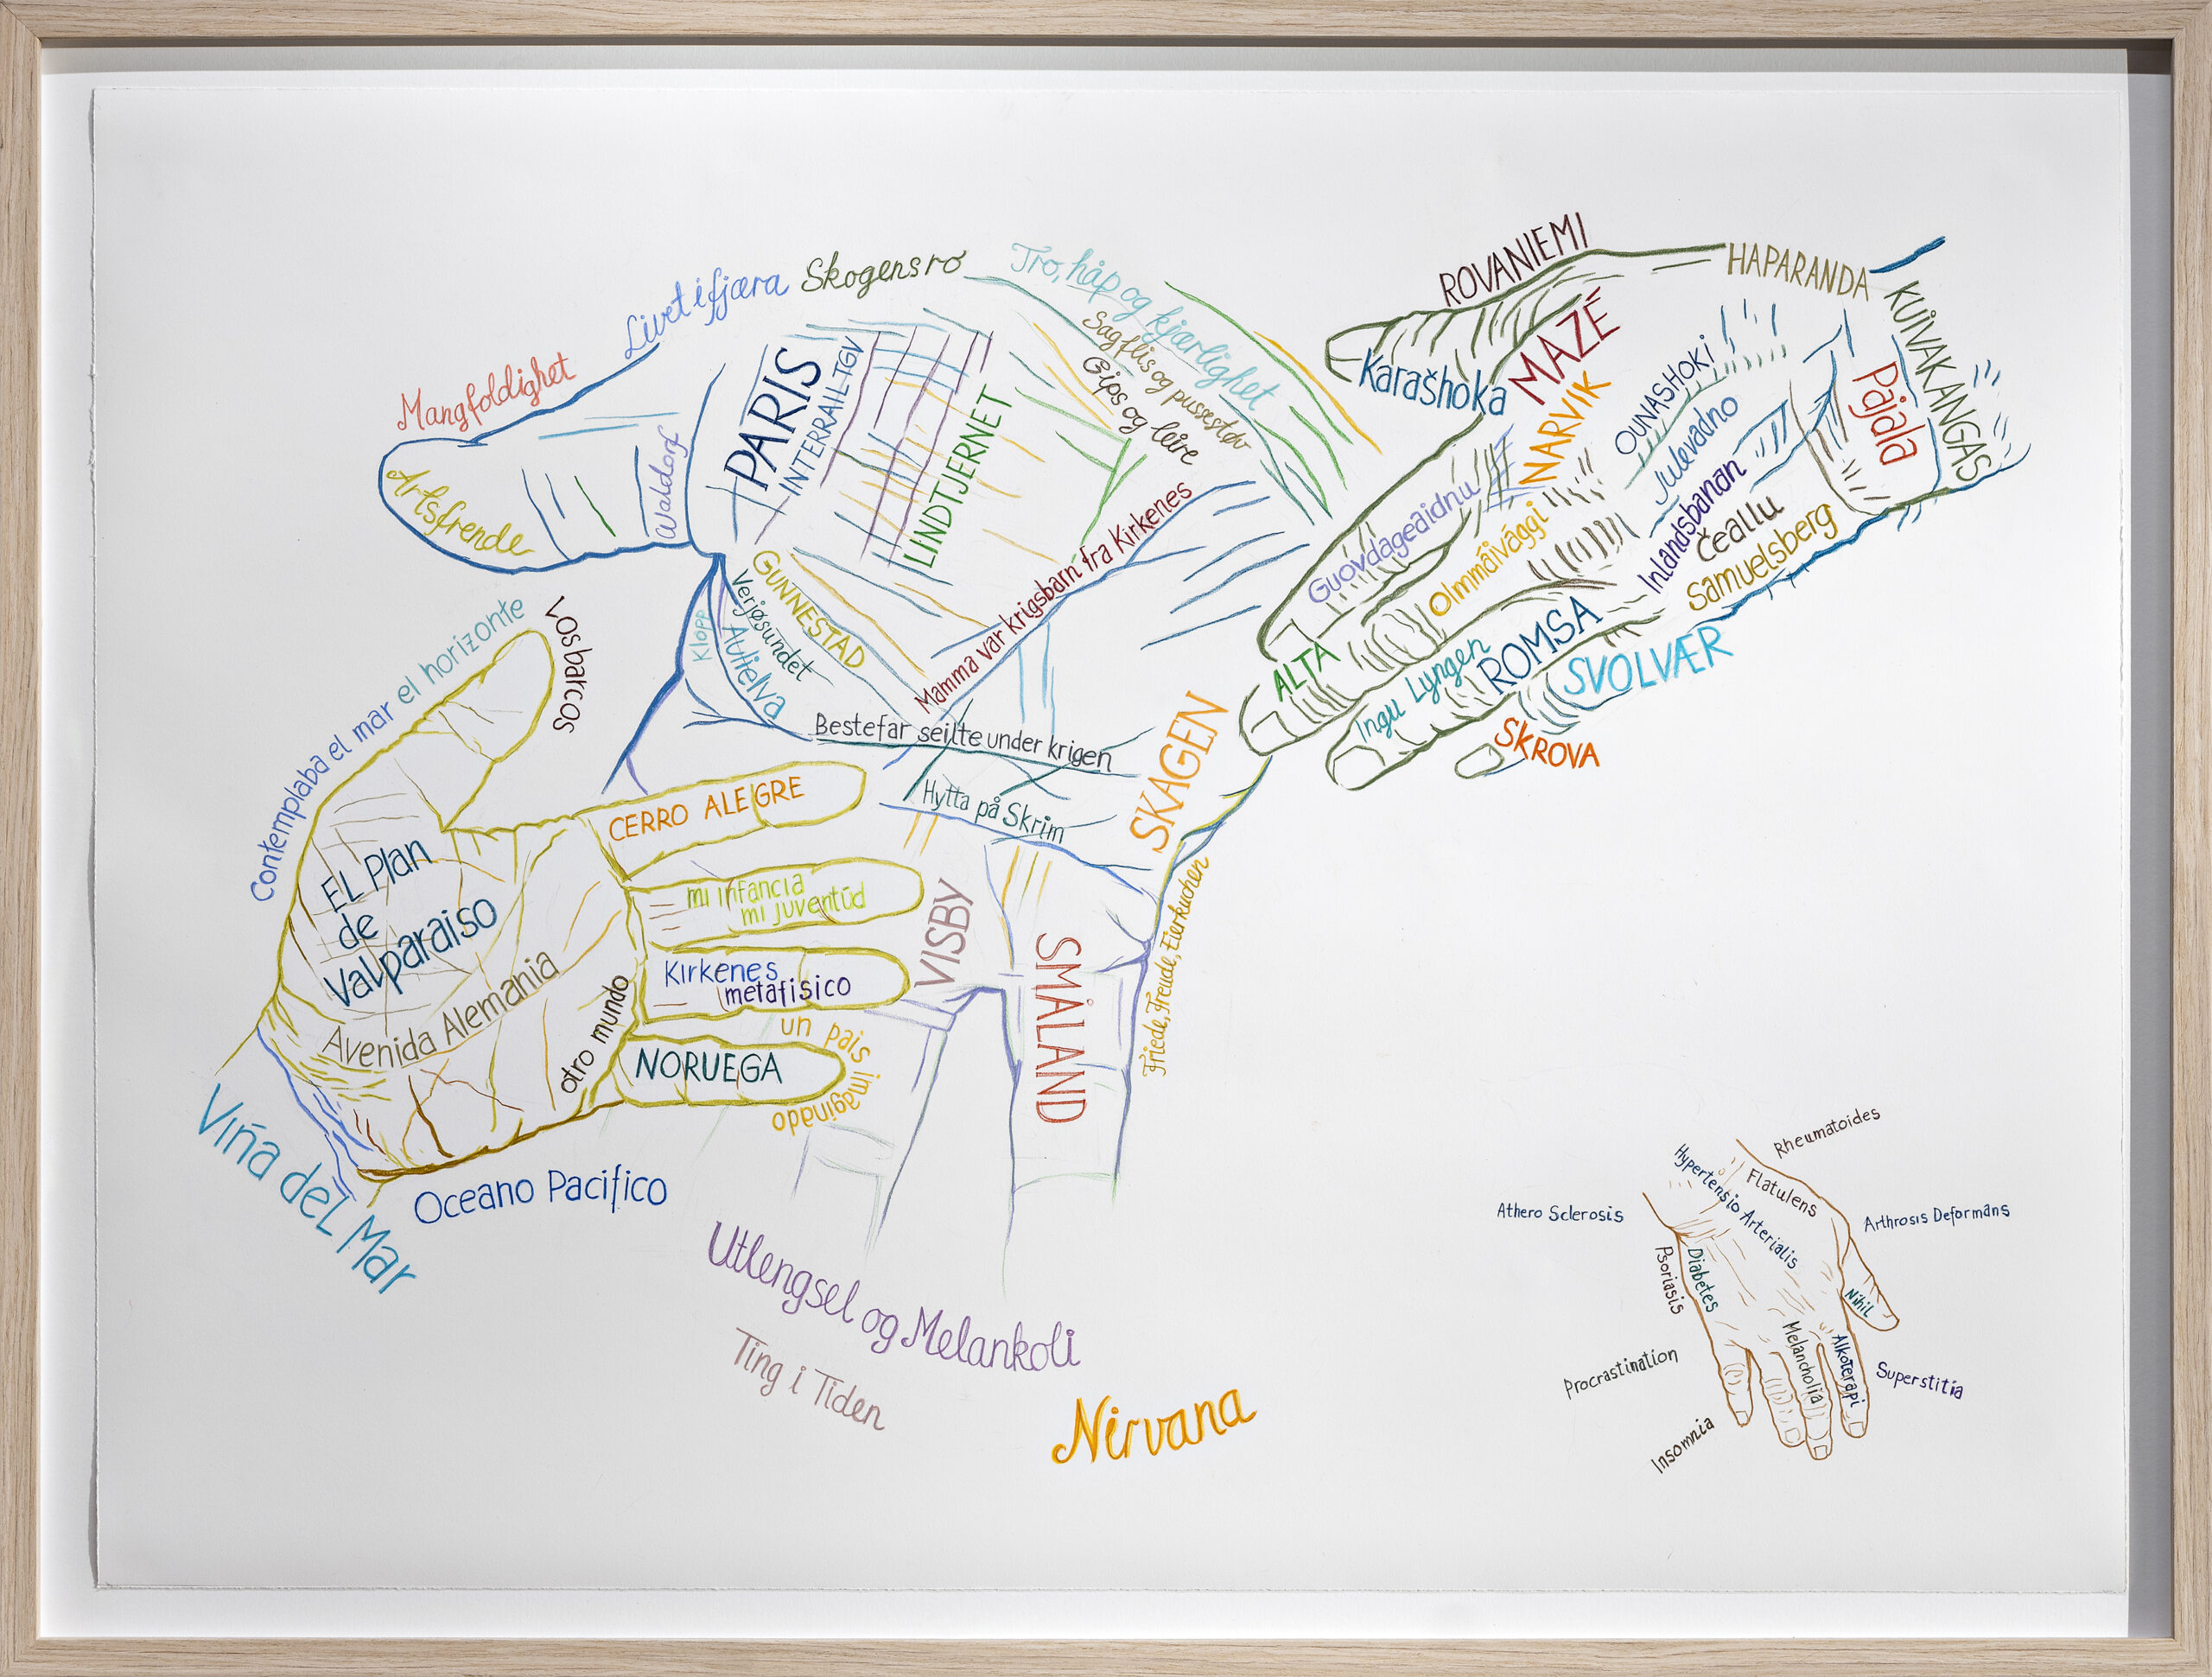 Mangfoldighet
Livet i fjæra
Skogensro
Tro, håp og kjærlighet
Sagflis og pussestøv
Gips og leire
Artsfrende
Waldorf
PARIS
INTERRAIL-TGV
LINDTJERNET
Mamma var krigsbarn fra Kirkenes
GUNNESTAD
Verjøsundet
Aulielva
Klopp
Bestefar seilte under krigen
Hytta på Skrim
SKAGEN
VISBY
SMÅLAND
Friede, Freude, Eierkuchen
ROVANIEMI
HAPARANDA
KUIVAKANGAS
Karašhoka
MAZÉ
NARVIK
OUNASHOKI
Julevadno
Pajala
Guovdageaidnu
Olmmáivággi
Inlandsbanan
Čeallu
Samuelsberg
ALTA
Ingu Lyngen
ROMSA
SVOLVÆR
SKROVA
Contemplaba el mar el horizonte
los barcos
EL Plan
de
Valparaiso
Avenida Alemania
otro mundo
CERRO ALEGRE
mi infancia
mi juventúd
Kirkenes
metafisico
un pais imaginado
NORUEGA
Viña del Mar
Oceano Pacifico
Utlengsel og Melankoli
Ting i Tiden
Nirvana
Rheumatoides
Hypertensio Arterialis
Flatulens
Athero Sclerosis
Arthrosis Deformans
Psoriasis
Diabetes
Nihil
Melancholia
Alkoterapi
Procrastination
Superstitia
Insomnia